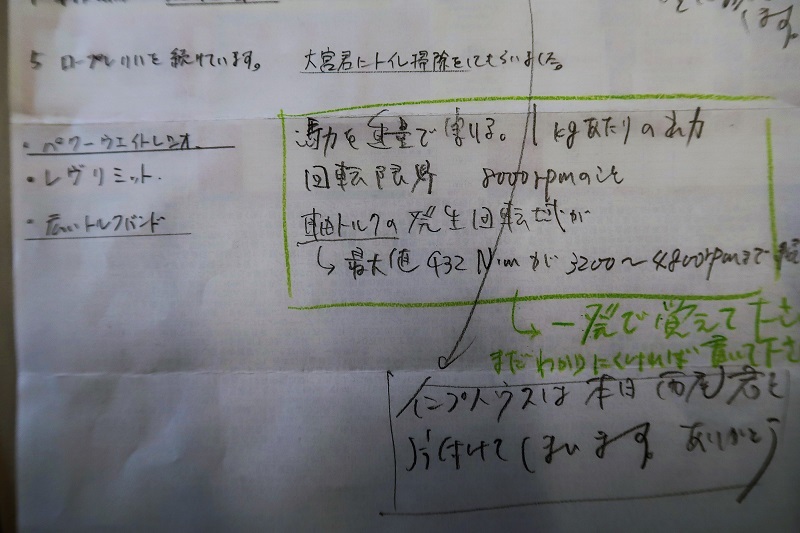 5 ロープレリレを続けています。 大宮君にトイレ掃除をしてもらいました。
・パワーウエイトレシオ
馬力を重量で割る。1kgあたりの出力
・レヴリミット.
回転限界 8000rpmのこと
・広いトルクバンド
軸トルクの発生回転域が
↳最大値 432N·mが3200〜4800rpmまで
↳一発で覚えて下さ
まだわかりにくければ書いて下さ
インプハウスは本日(西尾)君と
片付けてしまいます。ありがとう